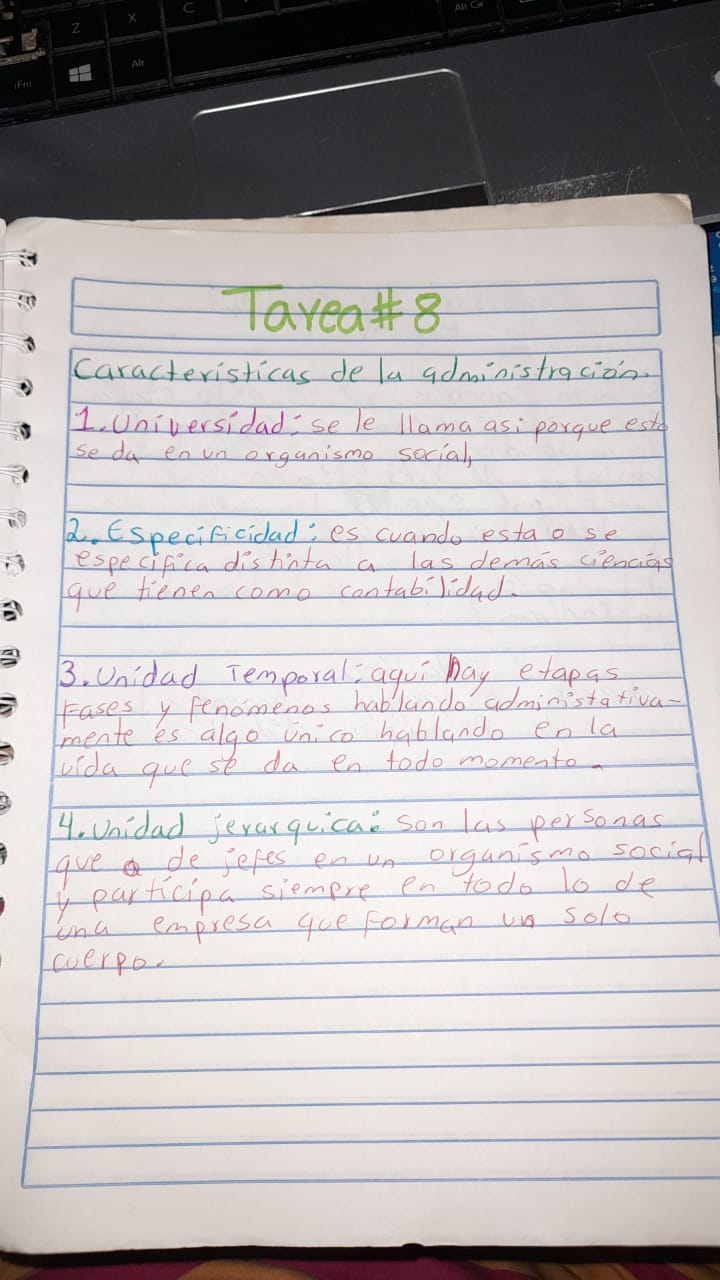 Z X C Alt Gr
(Fn) Alt
Tarea#8
Características de la administración.
1. Universidad: se le llama asi porque esto
se da en un organismo social,
2. Especificidad: es cuando esta o se
especifica distinta a las demás ciencias
que tienen como contabilidad.
3. Unidad Temporal: aquí hay etapas
Fases y fenómenos hablando administativa-
mente es algo único hablando en la
vida que se da en todo momento.
4. Unidad jerarquica: son las personas
que a de jefes en un organismo social
y participa siempre en todo lo de
una empresa que forman un solo
cuerpo.